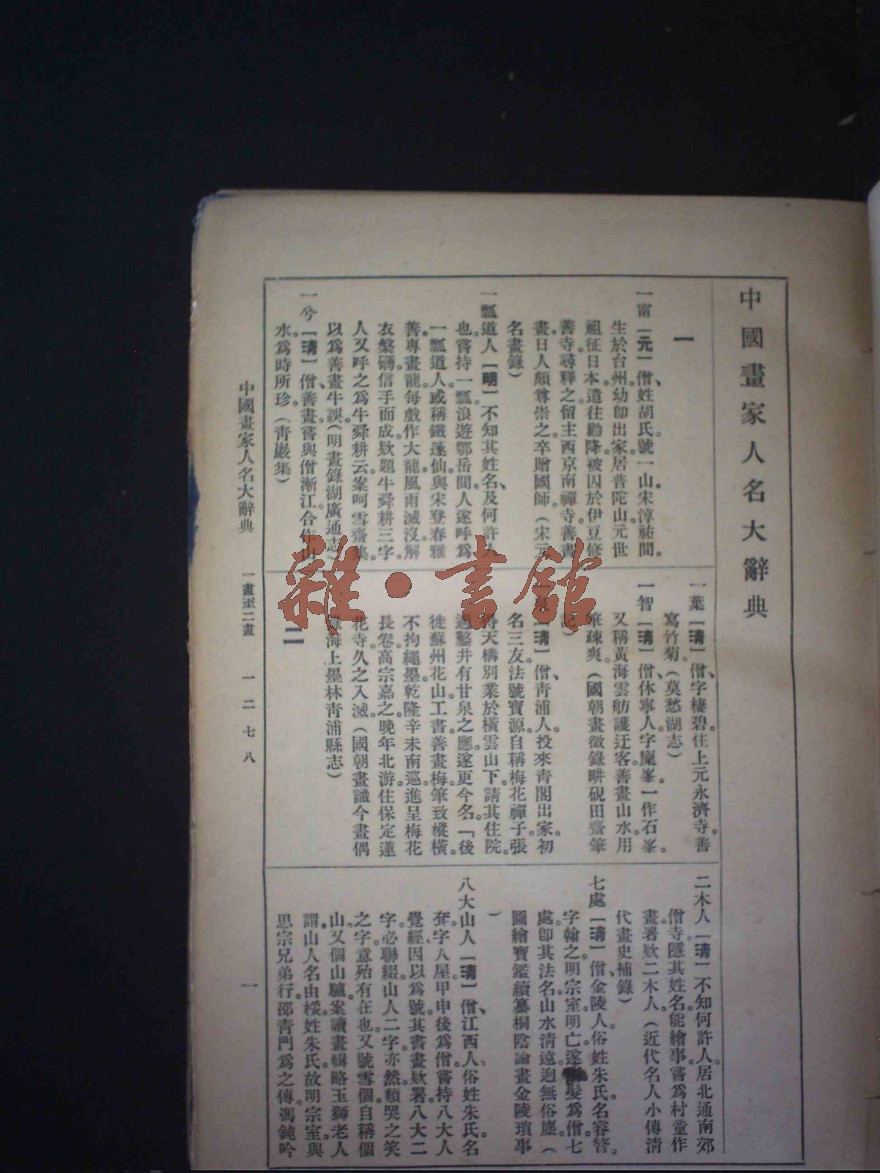 中國畫家人名大辭典
一
一甯【元】僧、姓胡氏號一山宋淳祐間。
生於台州幼卽出家居普陀山元世
祖征日本遣往勸降被囚於伊豆修
善寺尋釋之留主西京南禪寺善書
畫日人頗尊崇之卒贈國師（宋元
名畫錄）
一瓢道人【明】不知其姓名及何許人
也嘗持一瓢浪遊鄂岳間人遂呼爲
一瓢道人或稱鐵蓬仙與宋登春雅
善專畫龍每戲作大龍風雨滅沒解
衣槃礴信手而成欵題牛舜耕三字
人又呼之爲牛舜耕云案呵雪齋集
以爲善畫牛誤（明畫錄湖廣通志）
一兮【清】僧善畫嘗與僧漸江合作山
水爲時所珍。（靑巖集）
一葉【清】僧、字棲碧住上元永濟寺善
寫竹菊。（莫愁湖志）
一智【清】僧休寧人字廩峯一作石峯。
又稱黃海雲舫護迂客善畫山水用
筆疎爽（國朝畫徵錄畊硯田齋筆
【清】僧靑浦人投來靑閣出家初
名三友法號寶源自稱梅花禪子張
天構別業於橫雲山下請其住院
鑿井有甘泉之應遂更今名「後
徙蘇州花山工書善畫梅筆致樅橫
不拘繩墨乾隆辛未南巡進呈梅花
長卷高宗嘉之晚年北游住保定蓮
花寺久之入滅（國朝畫識今畫偶
錄海上墨林靑浦縣志）
二
二木人【清】不知何許人居北通南郊
僧寺隱其姓名能繪事嘗爲村童作
畫署欵二木人（近代名人小傳淸
代畫史補錄）
七處【清】僧金陵人俗姓朱氏名睿𥬠
字翰之明宗室明亡遂髮爲僧七
處卽其法名山水淸遠迥無俗塵。（
圖繪寶鑑續纂桐陰論畫金陵瑣事
）
八大山人【清】僧江西人俗姓朱氏名
耷字八屋甲申後爲僧嘗持八大人
覺經因以爲號其書畫欵署八大二
字必聯綴山人二字亦然類哭之笑
之字意殆有在也又號雪個自稱個
山又個山驢案讀畫輯略玉獅老人
謂山人名由桵姓朱氏故明宗室與
思宗兄弟行邵靑門爲之傳馮鈍吟
中國畫家人名大辭典　一畫至二畫　一二七八　一
雜·書館